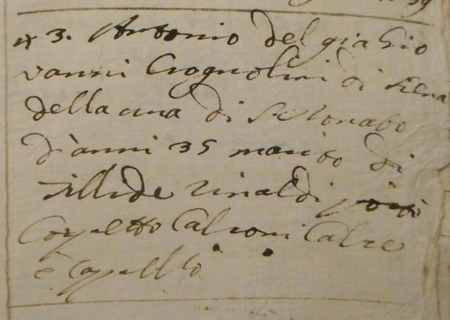 3. Antonio del già Gio
vanni Crognolini di Siena
della cura di S. Donato
d'anni 35 marito di
Rinaldi portò
Calzoni Calze
è Capello